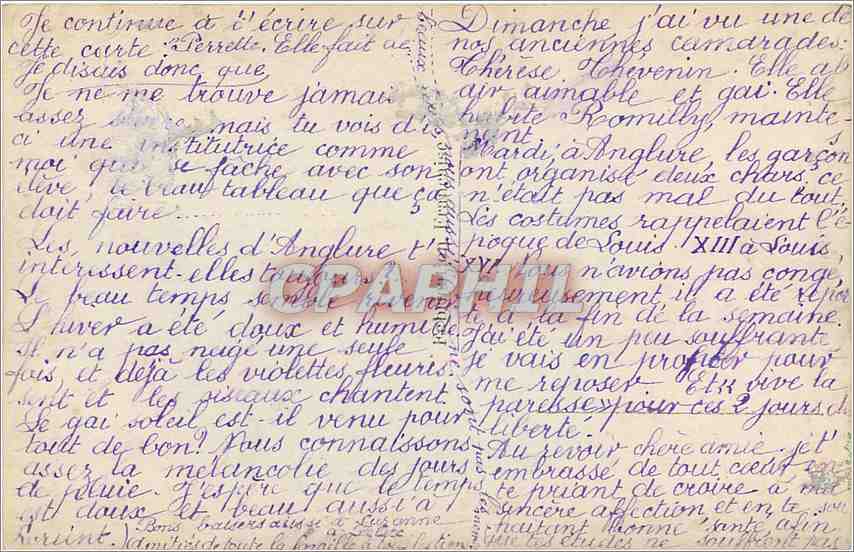 Je continue à t'écrire sur
cette carte "Perrette. Elle fait
Je disais donc que
Je ne me trouve jamais
assez mais tu vois d'i
ci une institutrice comme
moi qui se fâche avec son
élève, le beau tableau que ça
doit faire ............
Les nouvelles d'Anglure t'
intéressent-elles toujours
Le beau temps semble revenu
L'hiver a été doux et humide
Il n'a pas neigé une seule
fois, et déjà les violettes fleuris
sent et les oiseaux chantent.
Le gai soleil est-il venu pour
tout de bon? Nous connaissons
assez la mélancolie des jours
de pluie. J'espère que le temps
est doux et beau aussi à
Lorient.
Bons baisers aussi à Suzanne
amitiés de toute la famille à
Dimanche j'ai vu une de
nos anciennes camarades:
Thérèse Thévenin. Elle a l'
air aimable et gai. Elle
habite Romilly, mainte-
nant.
Mardi, à Anglure les garçons
ont organisé deux chars, ce
n'était pas mal du tout,
Les costumes rappelaient l'é-
poque de Louis XIII à Louis
XVI. Nous n'avions pas congé
heureusement il a été repor
té à la fin de la semaine.
J'ai été un peu souffrante,
je vais en profiter pour
me reposer. Et « vive la
paresse » pour ces 2 jours de
liberté.
Au revoir chère amie. je t'
embrasse de tout cœur en
te priant de croire à ma
sincère affection et en te sou
haitant bonne santé afin
que tes études ne souffrent pas
CPAPHIL